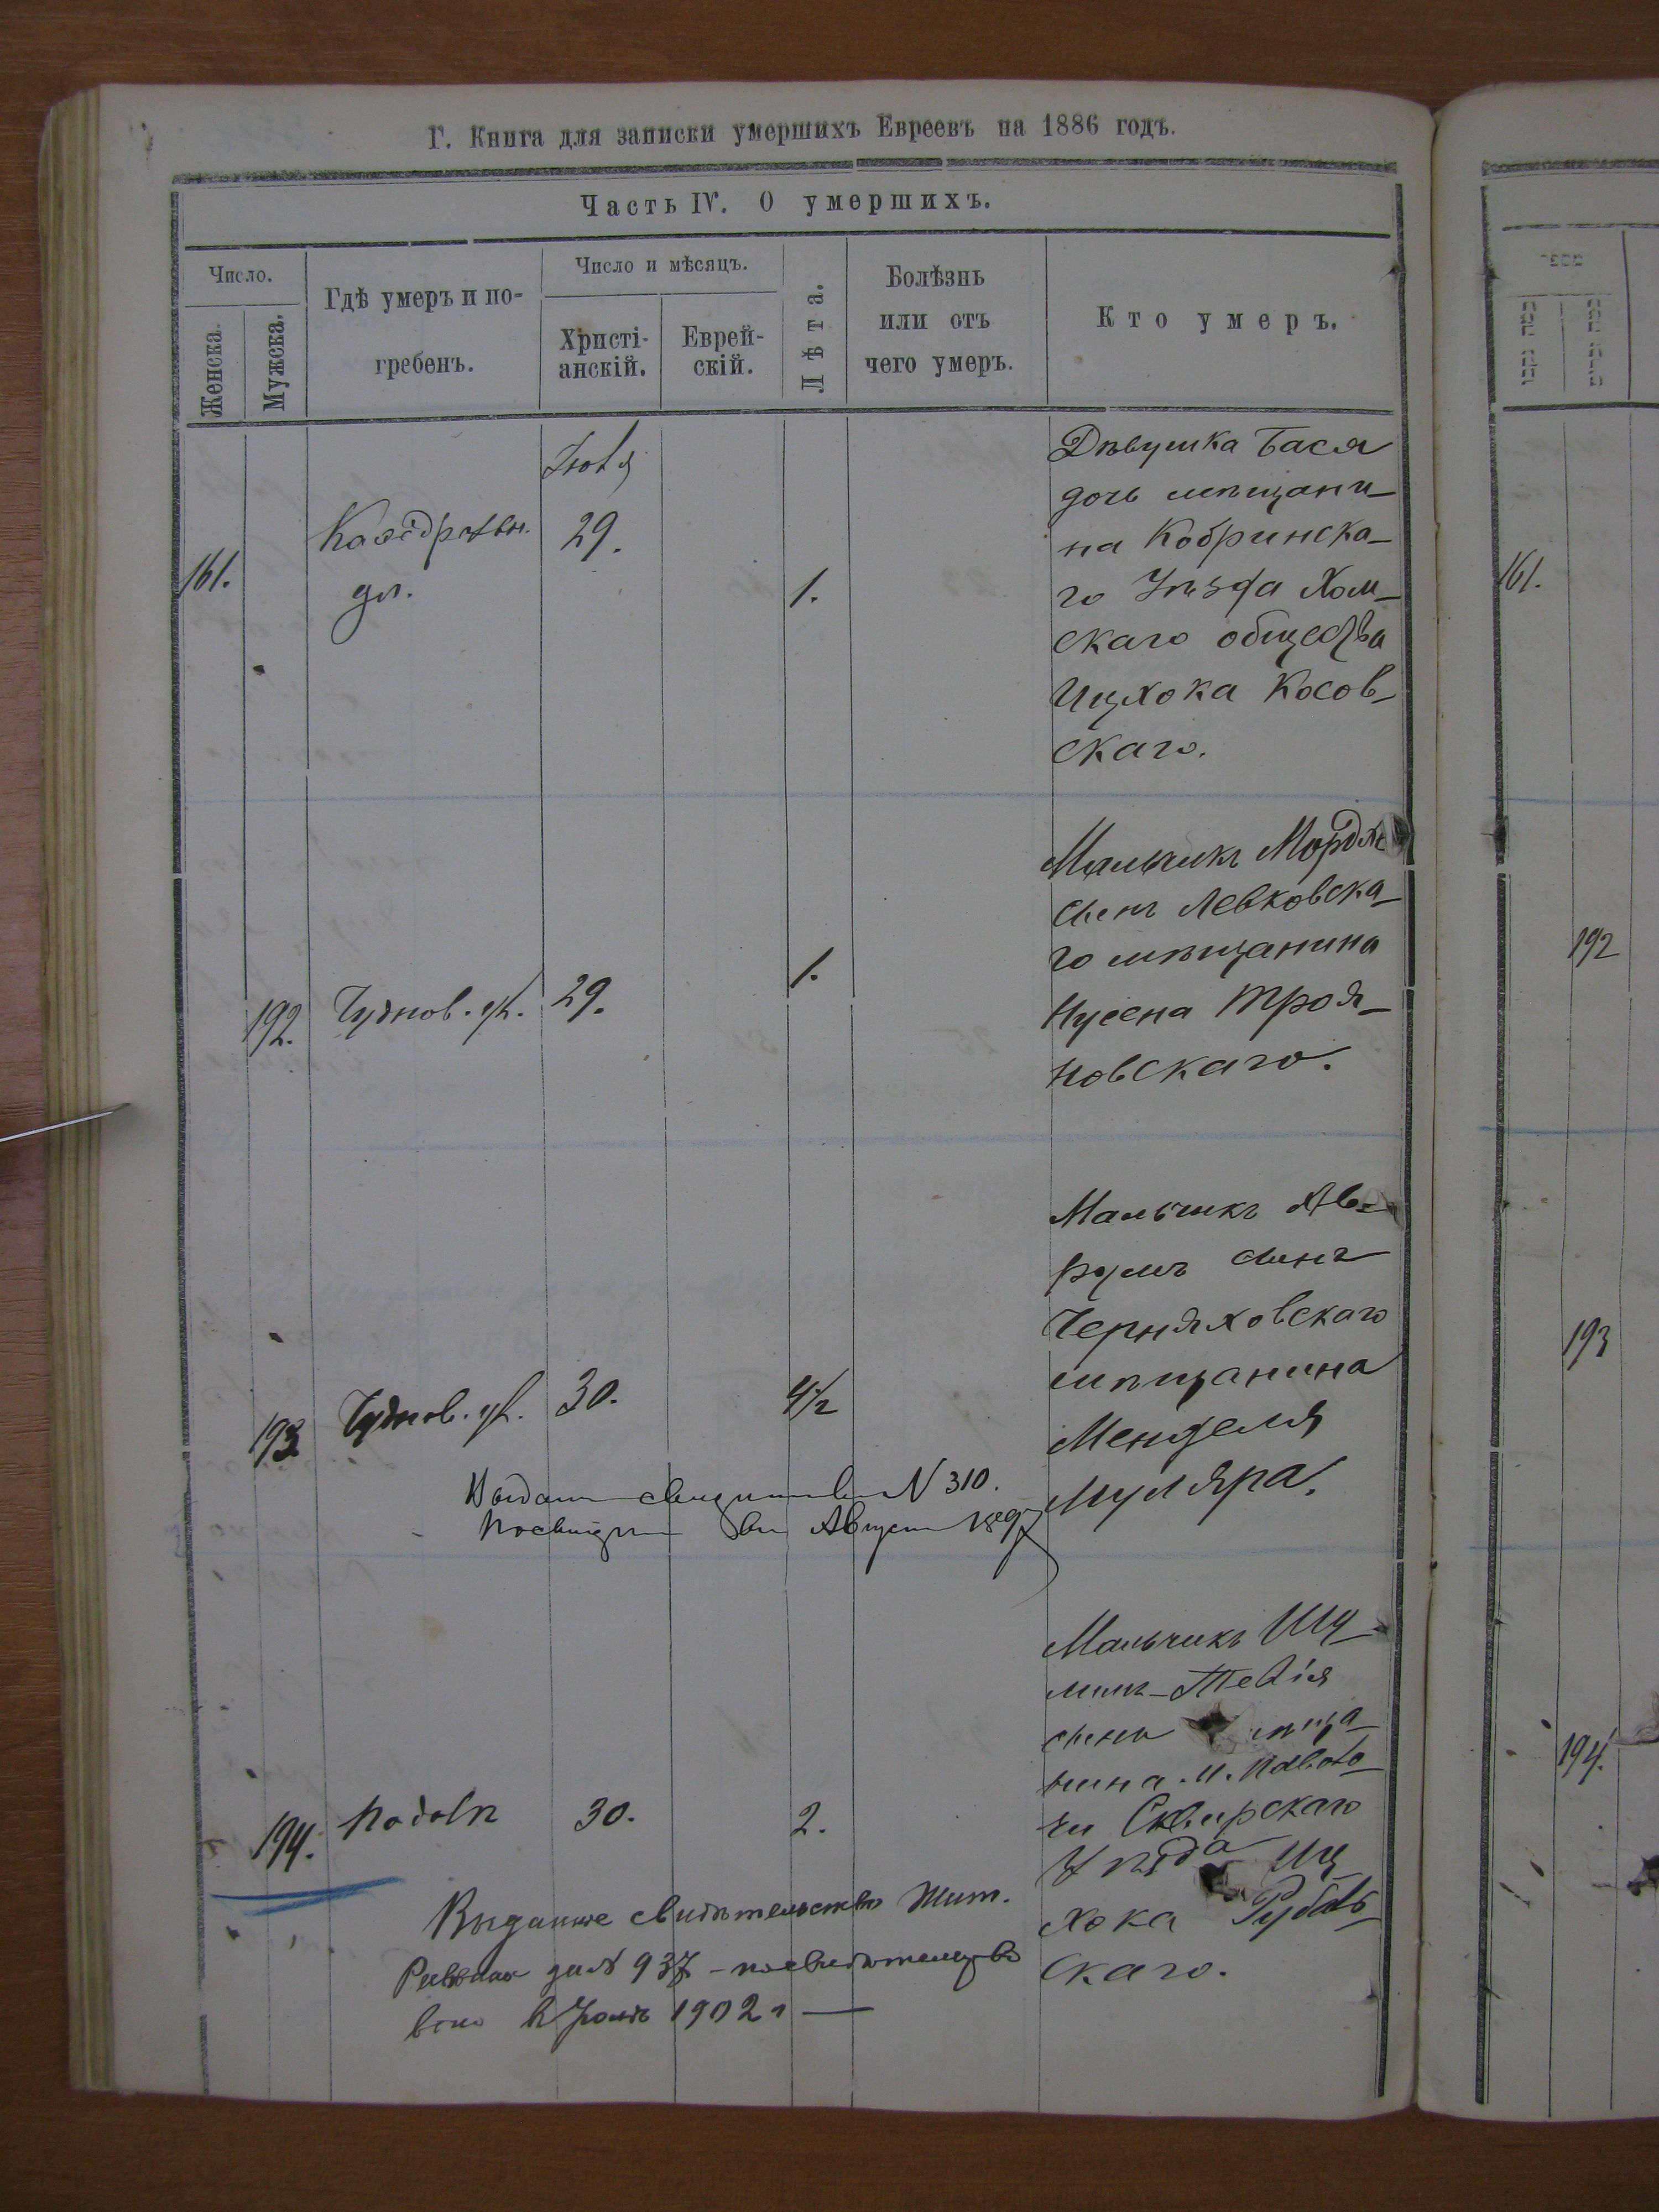 Г. Книга для записки умершихъ Евреевъ на 1886 годъ.
Часть IV. О умершихъ.
Число.
Женска.
Мужска.
Гдѣ умеръ и по-
гребенъ.
Число и мѣсяцъ.
Христі-
анскій.
Еврей-
скій.
Лѣта.
Болѣзнь
или отъ
чего умеръ.
Кто умеръ.
161.
Каѳедральн.
ул.
Іюля
29.
1.
Дѣвушка Бася
дочь мѣщани-
на Кобринска-
го Уѣзда Хом-
скаго общества
Ицхока Косов-
скаго.
192.
Чуднов. ул.
29.
1.
Мальчикъ Мордхе
сынъ Левковска-
го мѣщанина
Нусена Троя-
новскаго.
193
Чуднов. ул.
30.
4½
Мальчикъ Ав-
румъ сынъ
Черняховскаго
мѣщанина
Менделя
Муляра.
N 310.
Август
194.
Подоль
30.
2.
Мальчикъ Шу-
лимъ-Тевія
сынъ мѣща-
нина м. Паволо-
чи Сквирскаго
Уѣзда Иц-
хока Рубаль-
скаго.
Выданное свидѣтельство Жит.
за N 937
1902 г
161.
192
193
194.